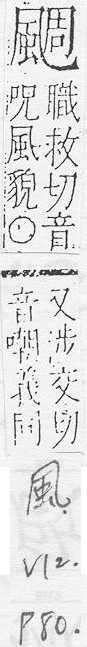 職救切音
呪風貌〇
又涉交切
音嘲義同
風.
V12.
P80.